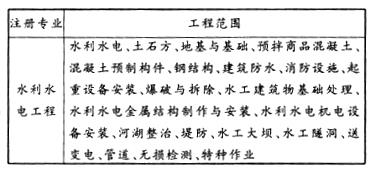 注册专业
工程范围
水利水
电工程
水利水电、土石方、地基与基础、预拌商品混凝土、
混凝土预制构件、钢结构、建筑防水、消防设施、起
重设备安装、爆破与拆除、水工建筑物基础处理、
水利水电金属结构制作与安装、水利水电机电设
备安装、河湖整治、堤防、水工大坝、水工隧洞、送
变电、管道、无损检测、特种作业